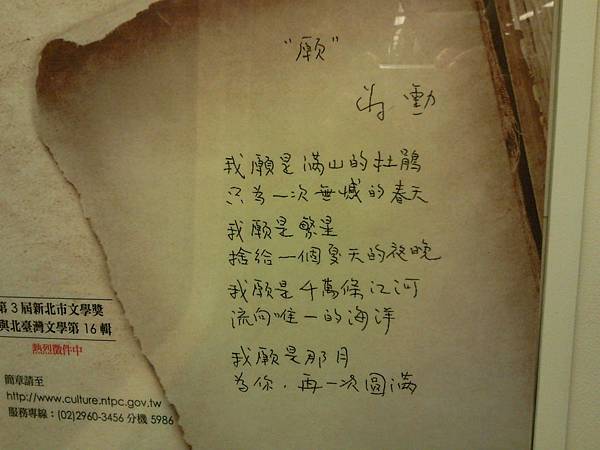 "願"
蔣勳
我願是滿山的杜鵑
只為一次無憾的春天
我願是繁星
捨給一個夏天的夜晚
我願是千萬條江河
流向唯一的海洋
我願是那月
為你，再一次圓滿
第3屆新北市文學獎
與北臺灣文學第16輯
熱烈徵件中
簡章請至
http://www.culture.ntpc.gov.tw
服務專線：(02)2960-3456 分機 5986